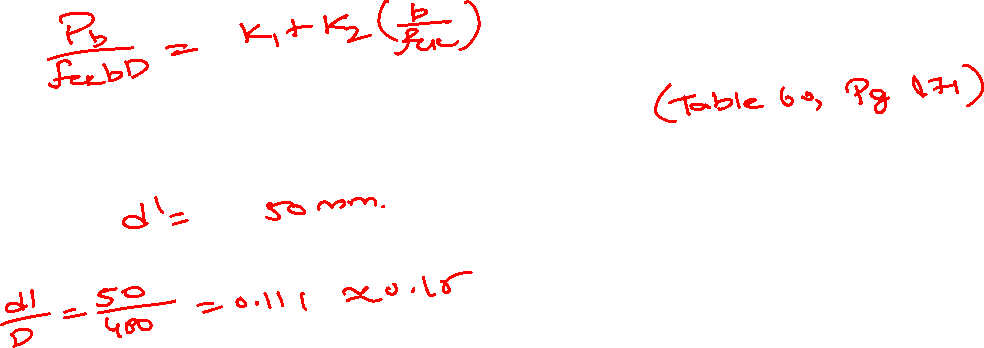 Pb / fck bD = K1 + K2 (p / fck)
(Table 60, Pg 171)
d' = 50 mm.
d' / D = 50 / 400 = 0.111 ≈ 0.15